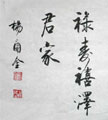 禄寿禧泽
君家
杨自全